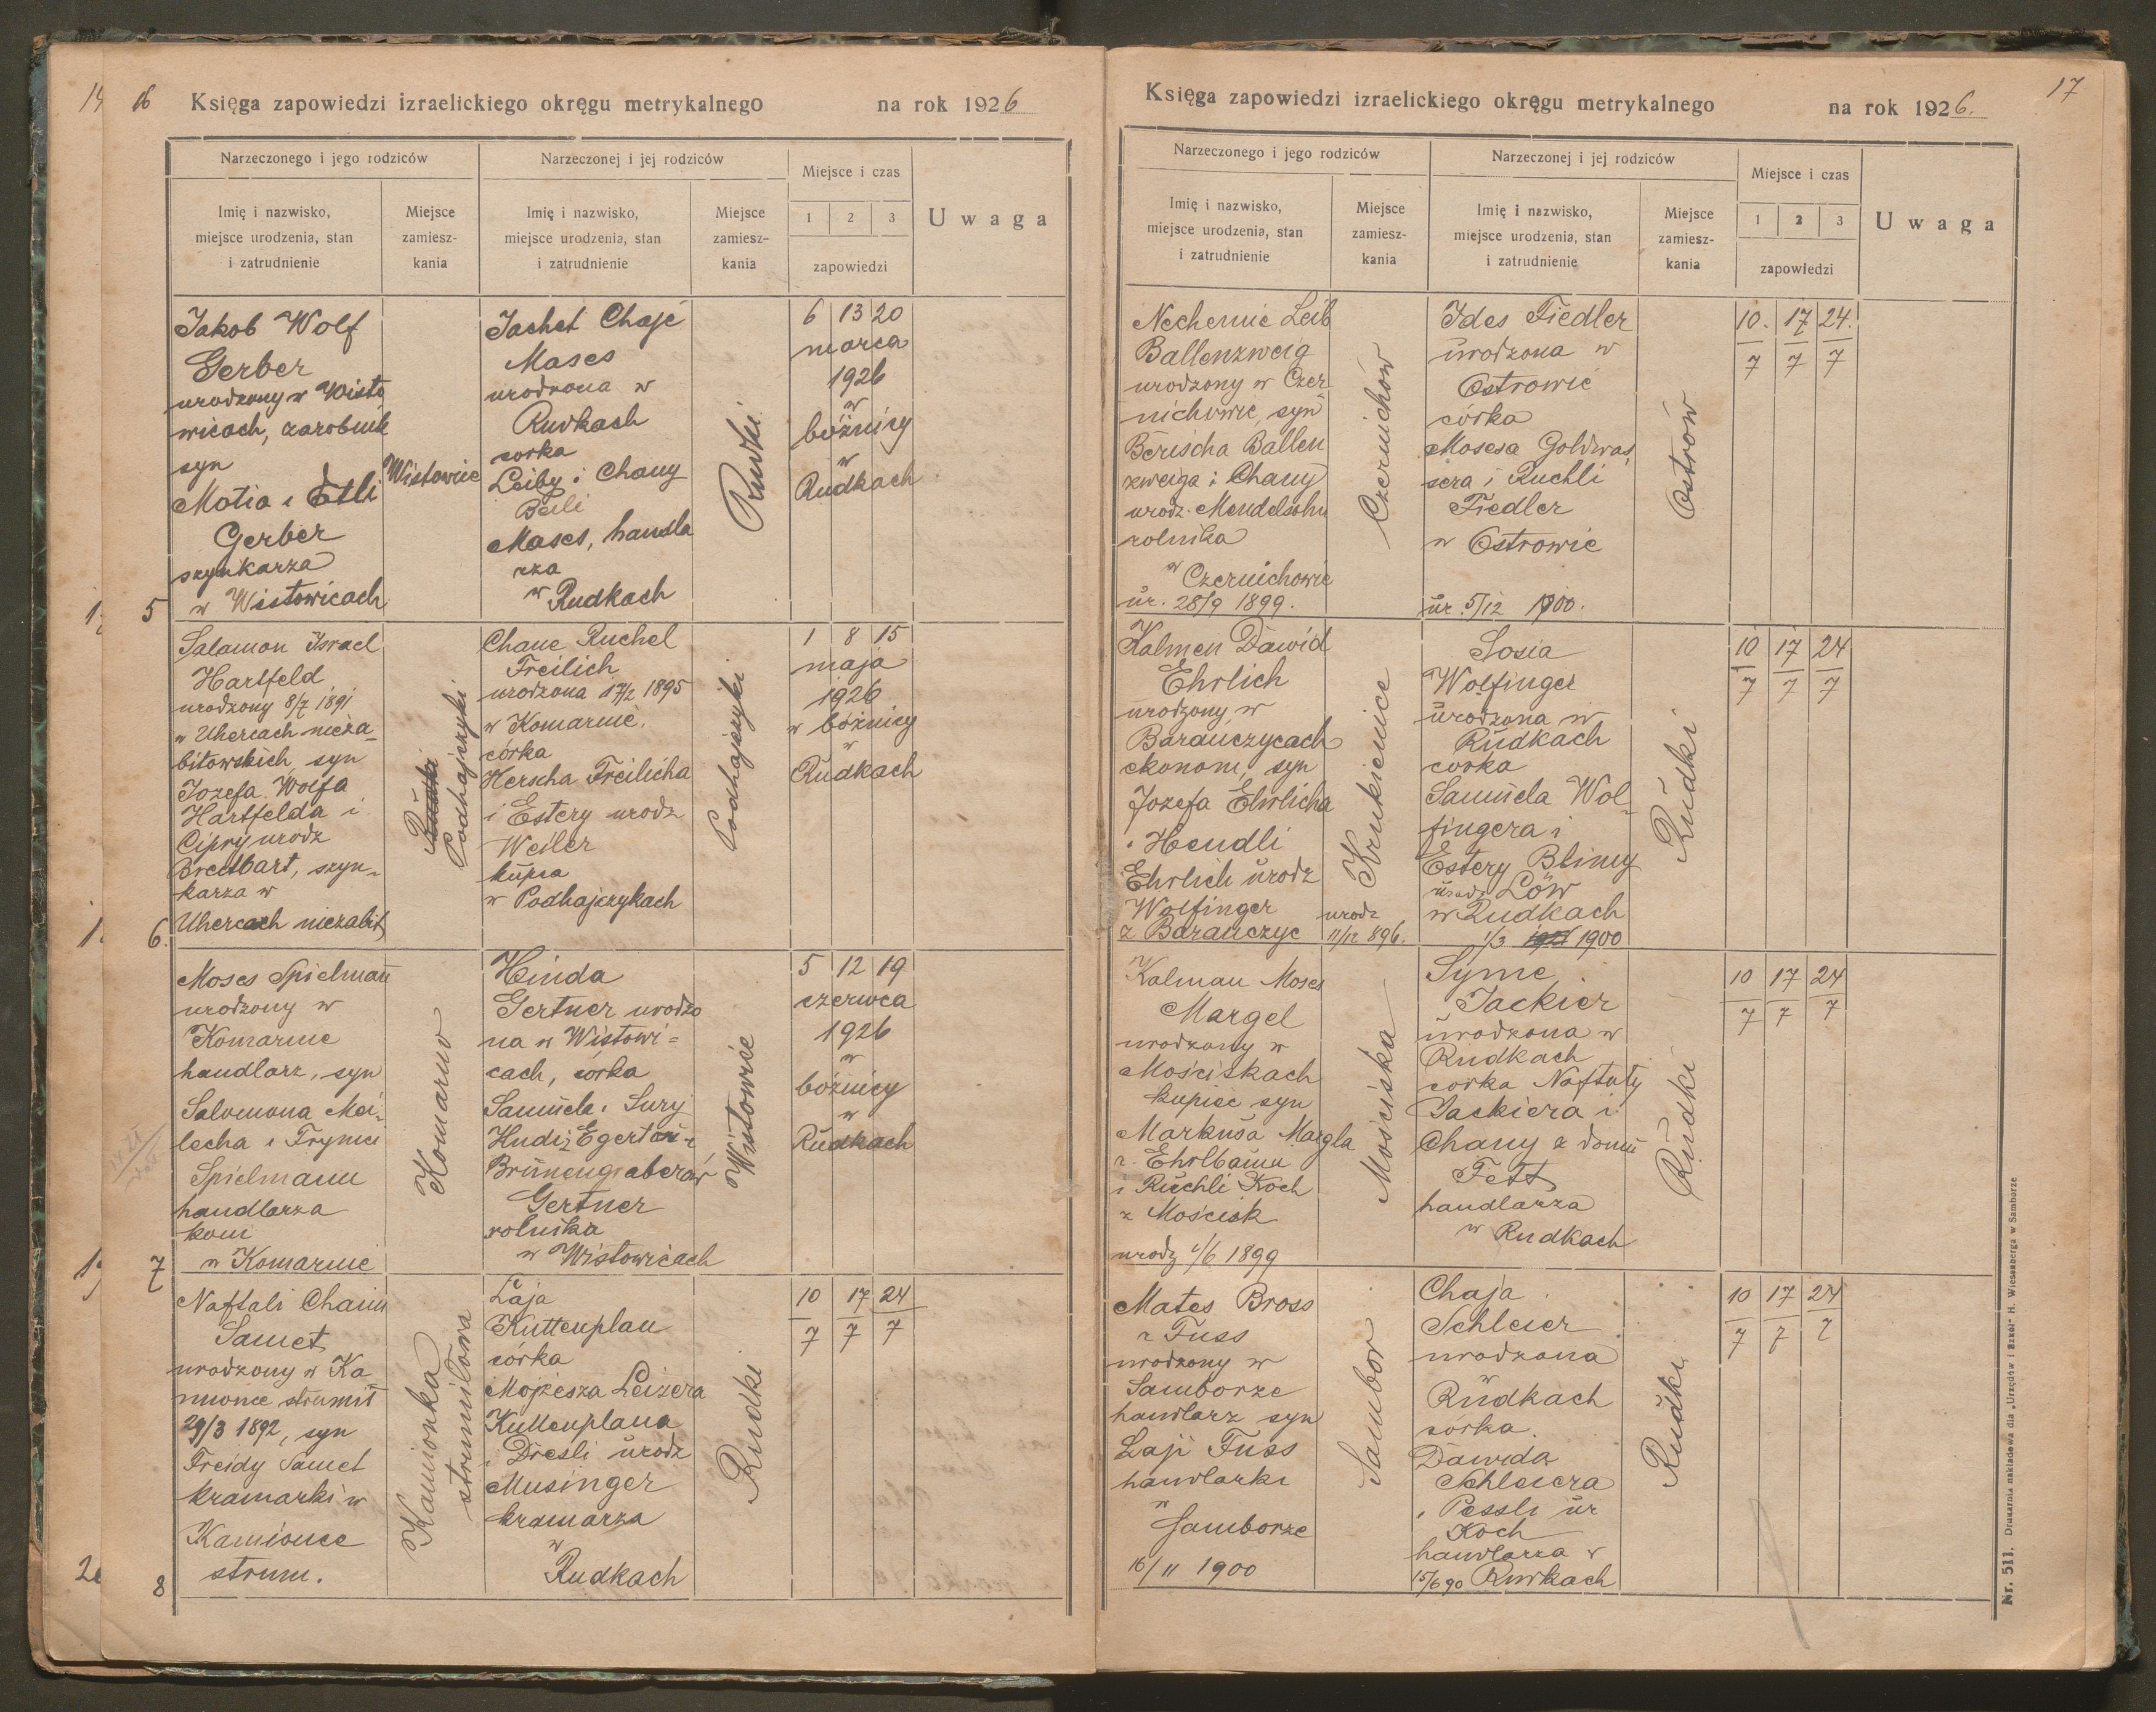 16 Księga zapowiedzi izraelickiego okręgu metrykalnego na rok 1926
Narzeczonego i jego rodziców
Narzeczonej i jej rodziców
Miejsce i czas
Uwaga
Imię i nazwisko,
miejsce urodzenia, stan
i zatrudnienie
Miejsce
zamiesz-
kania
Imię i nazwisko,
miejsce urodzenia, stan
i zatrudnienie
Miejsce
zamiesz-
kania
1 2 3
zapowiedzi
5
Jakob Wolf
Gerber
urodzony w Wisto
wicach, zarobnik
syn
Motia i Etli
Gerber
szynkarza
w Wistowicach
Wistowice
Jachet Chaje
Mases
urodzona w
Rudkach
corka
Leiby i Chany
Beili
Mases, handla
rza
w Rudkach
Rudki
6 13 20
marca
1926
w
bóżnicy
w
Rudkach
6.
Salamon Israel
Hartfeld
urodzony 8/7 1891
w Uhercach nieza-
bitowskich, syn
Jozefa Wolfa
Hartfelda i
Cipry urodz
Breitbart, szyn-
karza w
Uhercach niezabit
Rudki
Podhajczyki
Chane Ruchel
Freilich
urodzona 17/2 1895
w Komarnie,
córka
Herscha Freilicha
i Estery urodz
Weiler
kupca
w Podhajczykach
Podhajczyki
1 8 15
maja
1926
w bóżnicy
w
Rudkach
7
Moses Spielman
urodzony w
Komarnie
handlarz, syn
Salomona Mei-
lecha i Frymei
Spielmann
handlarza
koni
w Komarnie
Komarno
Hinda
Gertner urodzo
na w Wistowi=
cach, córka
Samuela i Sury
Hudi Egert
Brunengraberów
Gertner
rolnika
w Wistowicach
Wistowice
5 12 19
czerwca
1926
w
bóżnicy
w
Rudkach
8
Naftali Chaim
Samet
urodzony w Ka
mionce strumił
29/3 1892, syn
Freidy Samet
kramarki w
Kamionce
strum.
Kamionka
strumiłowa
Laja
Kuttenplan
córka
Mojżesza Leizera
Kuttenplana
i Dresli urodz
Musinger
kramarza
w
Rudkach
Rudki
10 17 24
7 7 7
Księga zapowiedzi izraelickiego okręgu metrykalnego na rok 1926. 17
Narzeczonego i jego rodziców
Narzeczonej i jej rodziców
Miejsce i czas
Uwaga
Imię i nazwisko,
miejsce urodzenia, stan
i zatrudnienie
Miejsce
zamiesz-
kania
Imię i nazwisko,
miejsce urodzenia, stan
i zatrudnienie
Miejsce
zamiesz-
kania
1 2 3
zapowiedzi
Nechemie Leib
Ballenzweig
urodzony w Czer
nichowie, syn
Berischa Ballen
zweiga i Chany
urodz. Mendelsohn
rolnika
w Czernichowie
ur. 28/9 1899.
Czernichów
Ides Fiedler
urodzona w
Ostrowie
córka
Mosesa Goldwas
sera i Ruchli
Fiedler
w Ostrowie
ur 5/12 1900.
Ostrów
10. 17 24.
7 7 7
Kalmen Dawid
Ehrlich
urodzony w
Baranczycach
ekonom, syn
Jozefa Ehrlicha
i Hendli
Ehrlich urodz
Wolfinger
z Baranczyc
urodz
11/12 896.
Krukienice
Sosia
Wolfinger
urodzona w
Rudkach
corka
Samuela Wol-
fingera i
Estery Blimy
urodz Löw
w Rudkach
1/3 1900
Rudki
10 17 24
7 7 7
Kalman Moses
Margel
urodzony w
Mościskach
kupiec syn
Markusa Margla
r. Ehrlbaum
i Ruchli Koch
z Mościsk
urodz /6 1899
Mościska
Syme
Jackier
urodzona w
Rudkach
corka Naftuly
Jackiera i
Chany z domu
Fett
handlarza
w Rudkach
Rudki
10 17 24
7 7 7
Mates Bross
r Fuss
urodzony w
Samborze
handlarz syn
Laji Fuss
handlarki
w
Samborze
16/11 1900
Sambor
Chaja
Schleier
urodzona
w
Rudkach
córka
Dawida
Schleiera
i Pessli ur
Koch
handlarza w
15/6 90 Rudkach
Rudki
10 17 24
7 7 7
Nr. 511. Drukarnia nakładowa dla „Urzędów i Szkół" H. Wiesenberga w Samborze